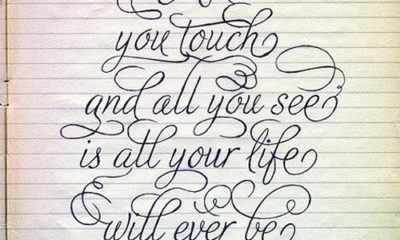 you touch
and all you see
is all your life
will ever be